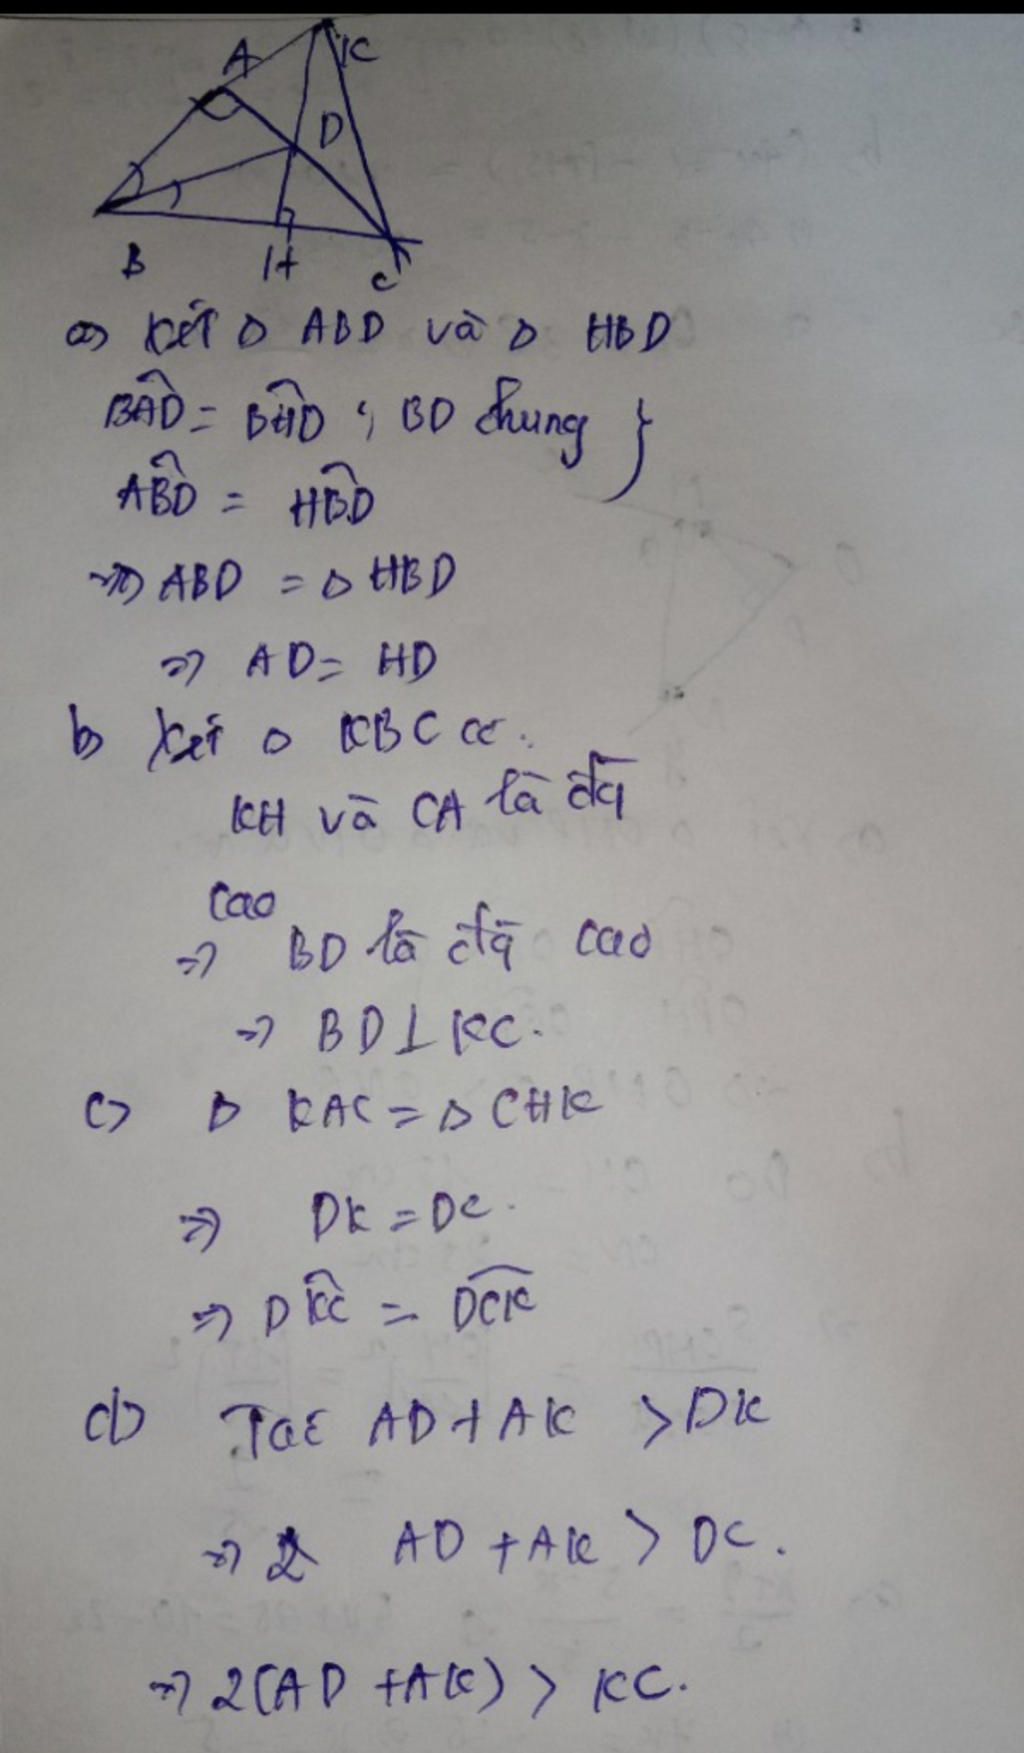 A
K
D
B
H
C
a) Xét Δ ABD và Δ HBD
BÂD = BĤD ; BD chung }
AB̂D = HB̂D
=> Δ ABD = Δ HBD
=> AD = HD
b) Xét Δ KBC có :
KH và CA là đg
cao
=> BD là đg cao
=> BD ⊥ KC.
c) Δ KAC = Δ CHK
=> DK = DC.
=> DK̂C = DĈK
d) Ta có AD + AK > DK
=> AD + AK > DC.
=> 2(AD + AK) > KC.